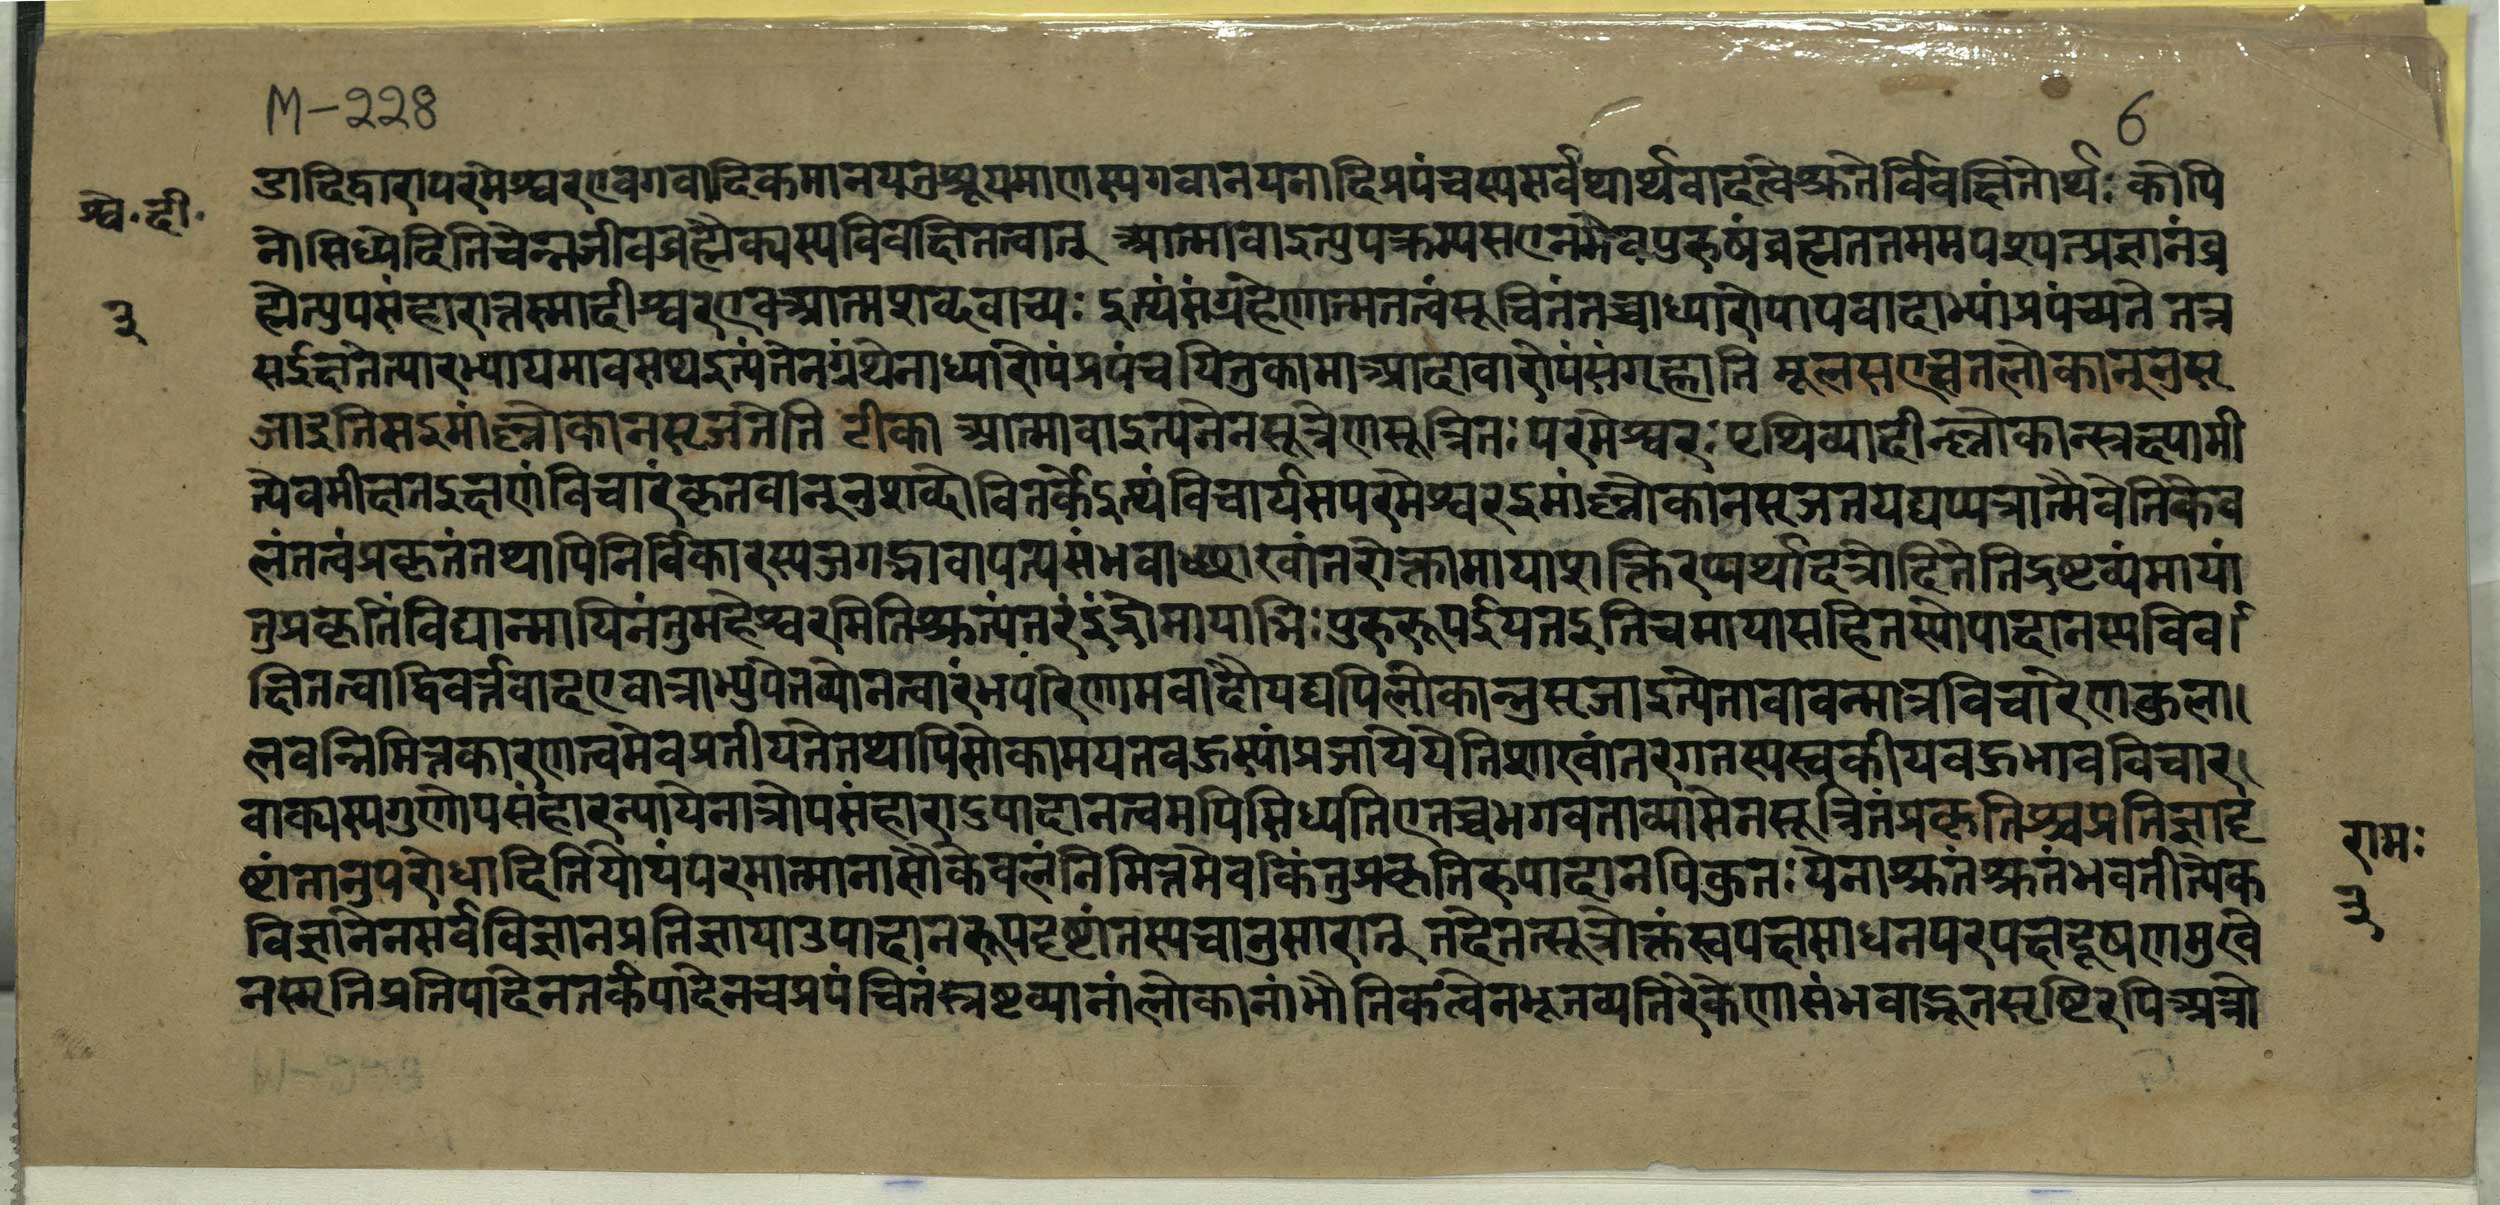 M-228
6
डादिद्वारापरमेश्वरएवगवादिकमानयत्तुश्रूयमाणस्यगवानयनादिप्रपंचस्यसर्वथार्थवादत्वेश्रुतेर्विवक्षितोर्थः कोपि
ऐ॰दी॰
नोसिध्येदितिचेन्नजीवब्रह्मैक्यस्यविवक्षितत्वात् आत्मावाइत्युपक्रम्यसएतमेवपुरुषंब्रह्मततममपश्यत्प्रज्ञानंब्र
३
ह्मेत्युपसंहारात्तस्मादीश्वरएवआत्मशब्दवाच्यः इत्थंसंग्रहेणात्मतत्वंसूचितंतच्चाध्यारोपापवादाभ्यांप्रपंच्यते तत्र
सईक्षतेत्यारभ्यायमावसथइत्यंतेनग्रंथेनाध्यारोपंप्रपंचयितुकामआदावारोपंसंगृह्णाति मूलसएक्षतलोकान्नुसृ
जाइतिसइमांल्लोकानसृजतेति टीका आत्मावाइत्यनेनसूत्रेणसूत्रितः परमेश्वरः पृथिव्यादील्लोकान्स्रक्ष्यामी
त्येवमीक्षतइक्षणंविचारंकृतवान् नुशब्दोवितर्केइत्थंविचार्यसपरमेश्वरइमांल्लोकानसृजतयद्यप्यत्रात्मैवेतिकेव
लंतत्वंप्रकृतंतथापिनिर्विकारस्यजगद्भावापत्यसंभवाच्छाखांतरोक्तामायाशक्तिरप्यर्थादत्रोदितेतिद्रष्टव्यंमायां
तुप्रकृतिंविद्यान्मायिनंतुमहेश्वरमितिश्रुत्यंतरंइंद्रोमायाभिः पुरुरूपईयतइतिचमायासहितस्योपादानस्यविव
क्षितत्वाद्विवर्त्तवादएवात्राभ्युपेतव्योनत्वारंभपरिणामवादौयद्यपिलोकान्नुसृजाइत्येतावावन्मात्रविचारेणकुला
लवन्निमित्तकारणत्वमेवप्रतीयतेतथापिसोकामयतबहुस्यांप्रजायेयेतिशाखांतरगतस्यस्वकीयबहुभावविचार
वाक्यस्यगुणोपसंहारन्यायेनात्रोपसंहारादुपादानत्वमपिसिध्यतिएतच्चभगवताव्यासेनसूत्रितंप्रकृतिश्चप्रतिज्ञादृ
रामः
ष्टांतानुपरोधादितियोयंपरमात्मानासौकेवलंनिमित्तमेवकिंतुप्रकृतिरुपादानपिकुतः येनाश्रुतंश्रुतंभवतीत्येक
३
विज्ञानेनसर्वविज्ञानप्रतिज्ञायाउपादानरूपदृष्टांतस्यचानुसारात् तदेतत्सूत्रोक्तंस्वपक्षसाधनपरपक्षदूषणमुखे
नस्मृतिप्रतिपादेनतर्कपादेनचप्रपंचितंस्रष्टव्यानांलोकानांभौतिकत्वेनभूतव्यतिरेकेणासंभवाद्भूतसृष्टिरपिअत्रो